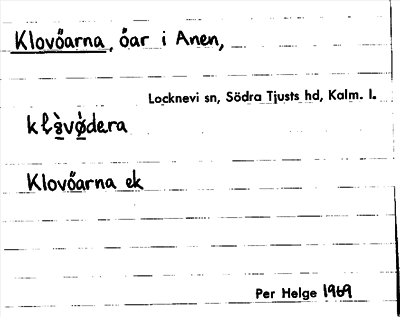 Klovőarna, őar i Anen,
Locknevi sn, Södra Tjusts hd, Kalm. l.
klǝ̀vø̀dera
Klovőarna ek
Per Helge 1969